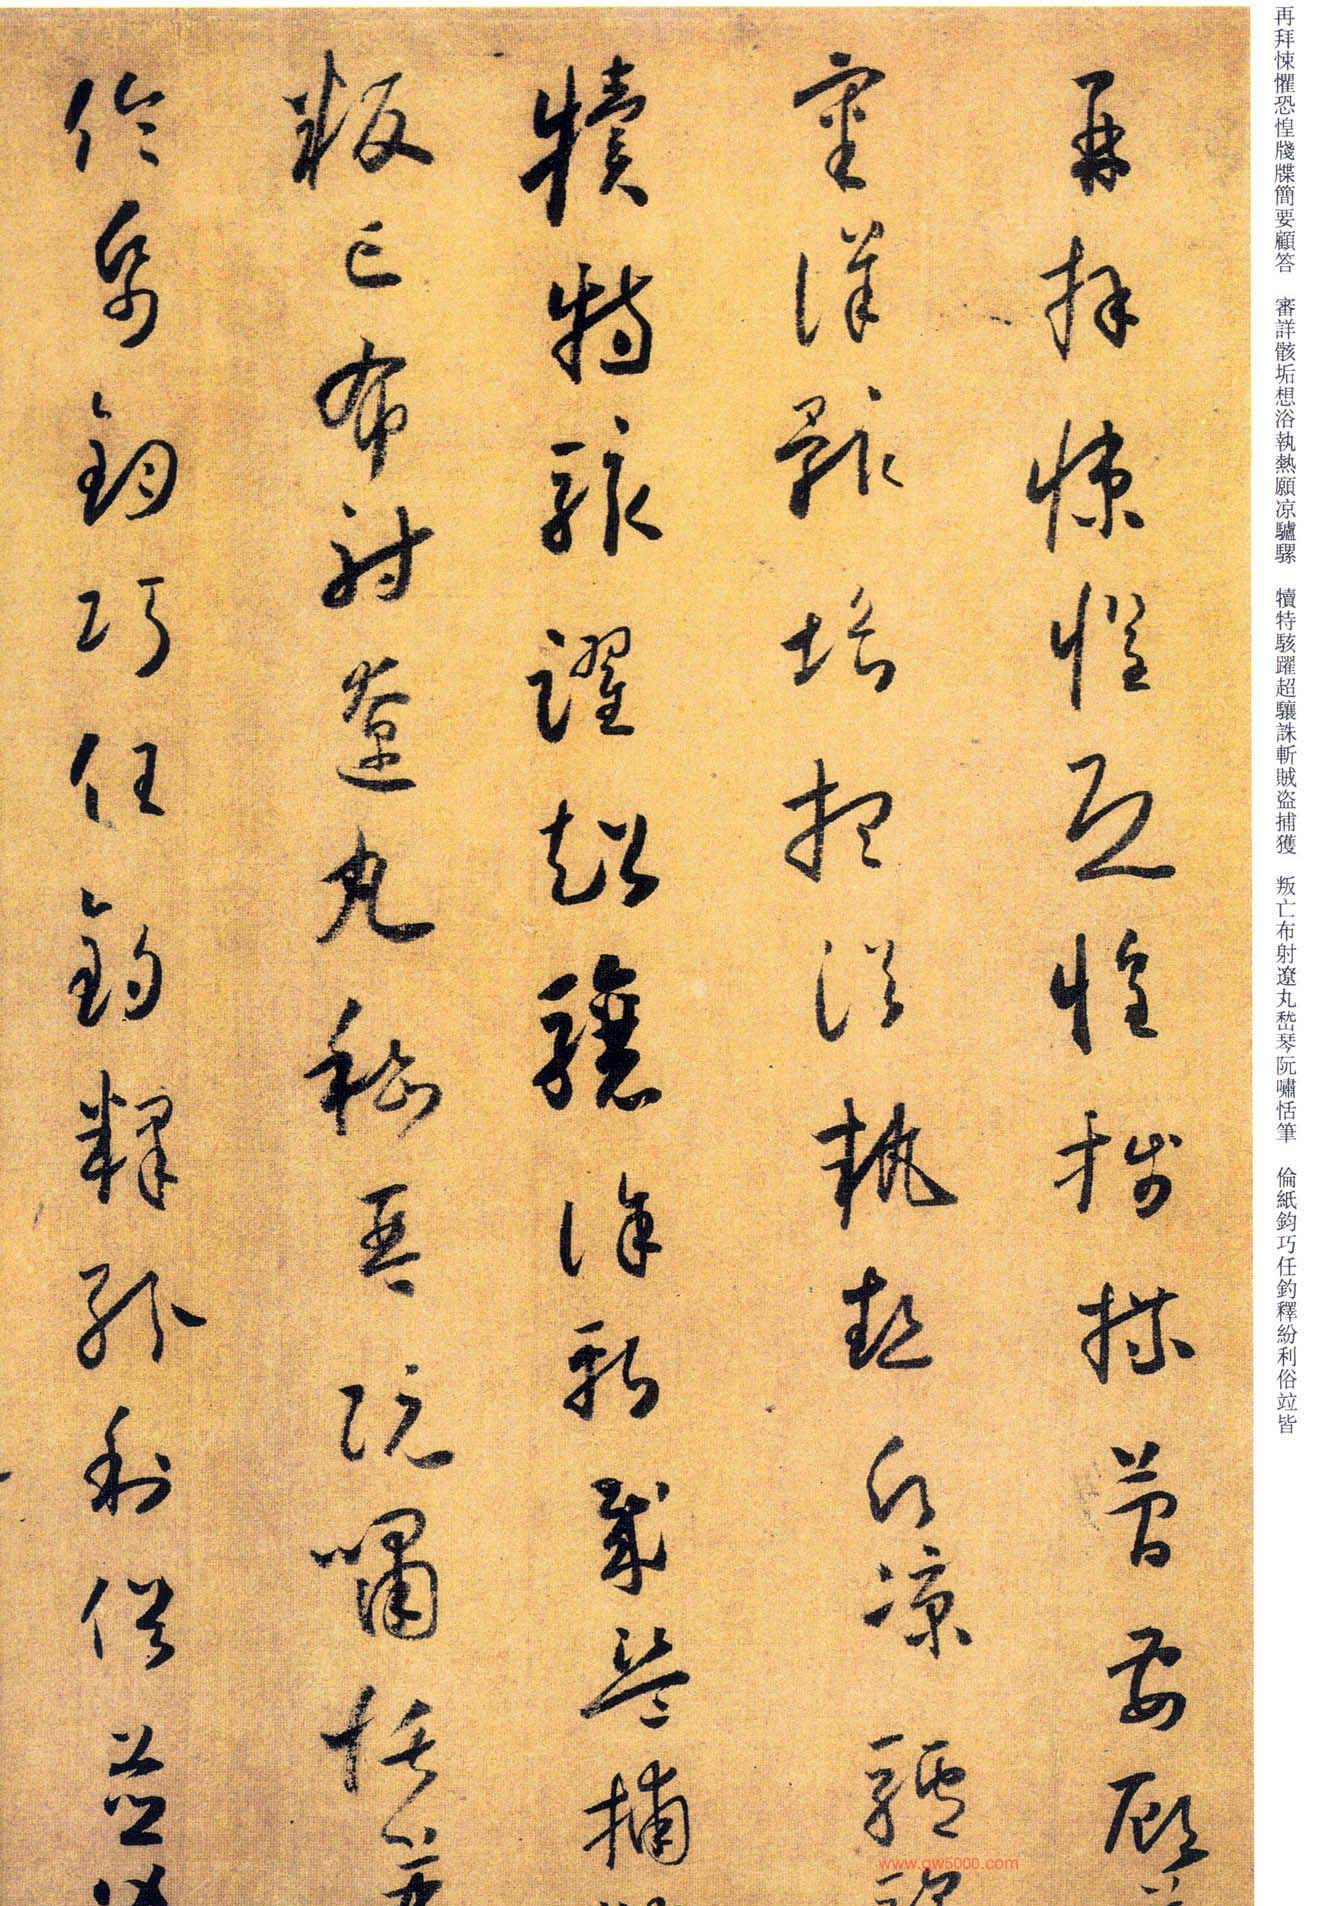 再拜悚懼恐惶牋牒簡要顧答　審詳骸垢想浴執熱願凉驢騾　犢特駭躍超驤誅斬賊盗捕獲　叛亡布射遼丸嵇琴阮嘯恬筆　倫紙鈞巧任釣釋紛利俗竝皆
再拜悚懼恐惶牋牒簡要顧
審詳骸垢想浴執熱願凉驢
犢特駭躍超驤誅斬賊盗捕
叛亡布射遼丸嵇琴阮嘯恬筆
倫紙鈞巧任釣釋紛利俗並
www.gw5000.com